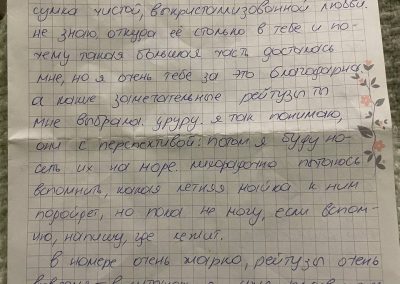 сумка чистой, выкристаллизованной любви.
не знаю, откуда её столько в тебе и по-
чему такая большая часть досталась
мне, но я очень тебе за это благодарна
а какие замечательные рейтузы ты
мне выбрала. уруру. я так понимаю,
они с перспективой: потом я буду но-
сить их на море. лихорадочно пытаюсь
вспомнить, какая летняя майка к ним
подойдет, но пока не могу, если вспом-
ню, напишу, где лежит.
в номере очень жарко, рейтузы очень